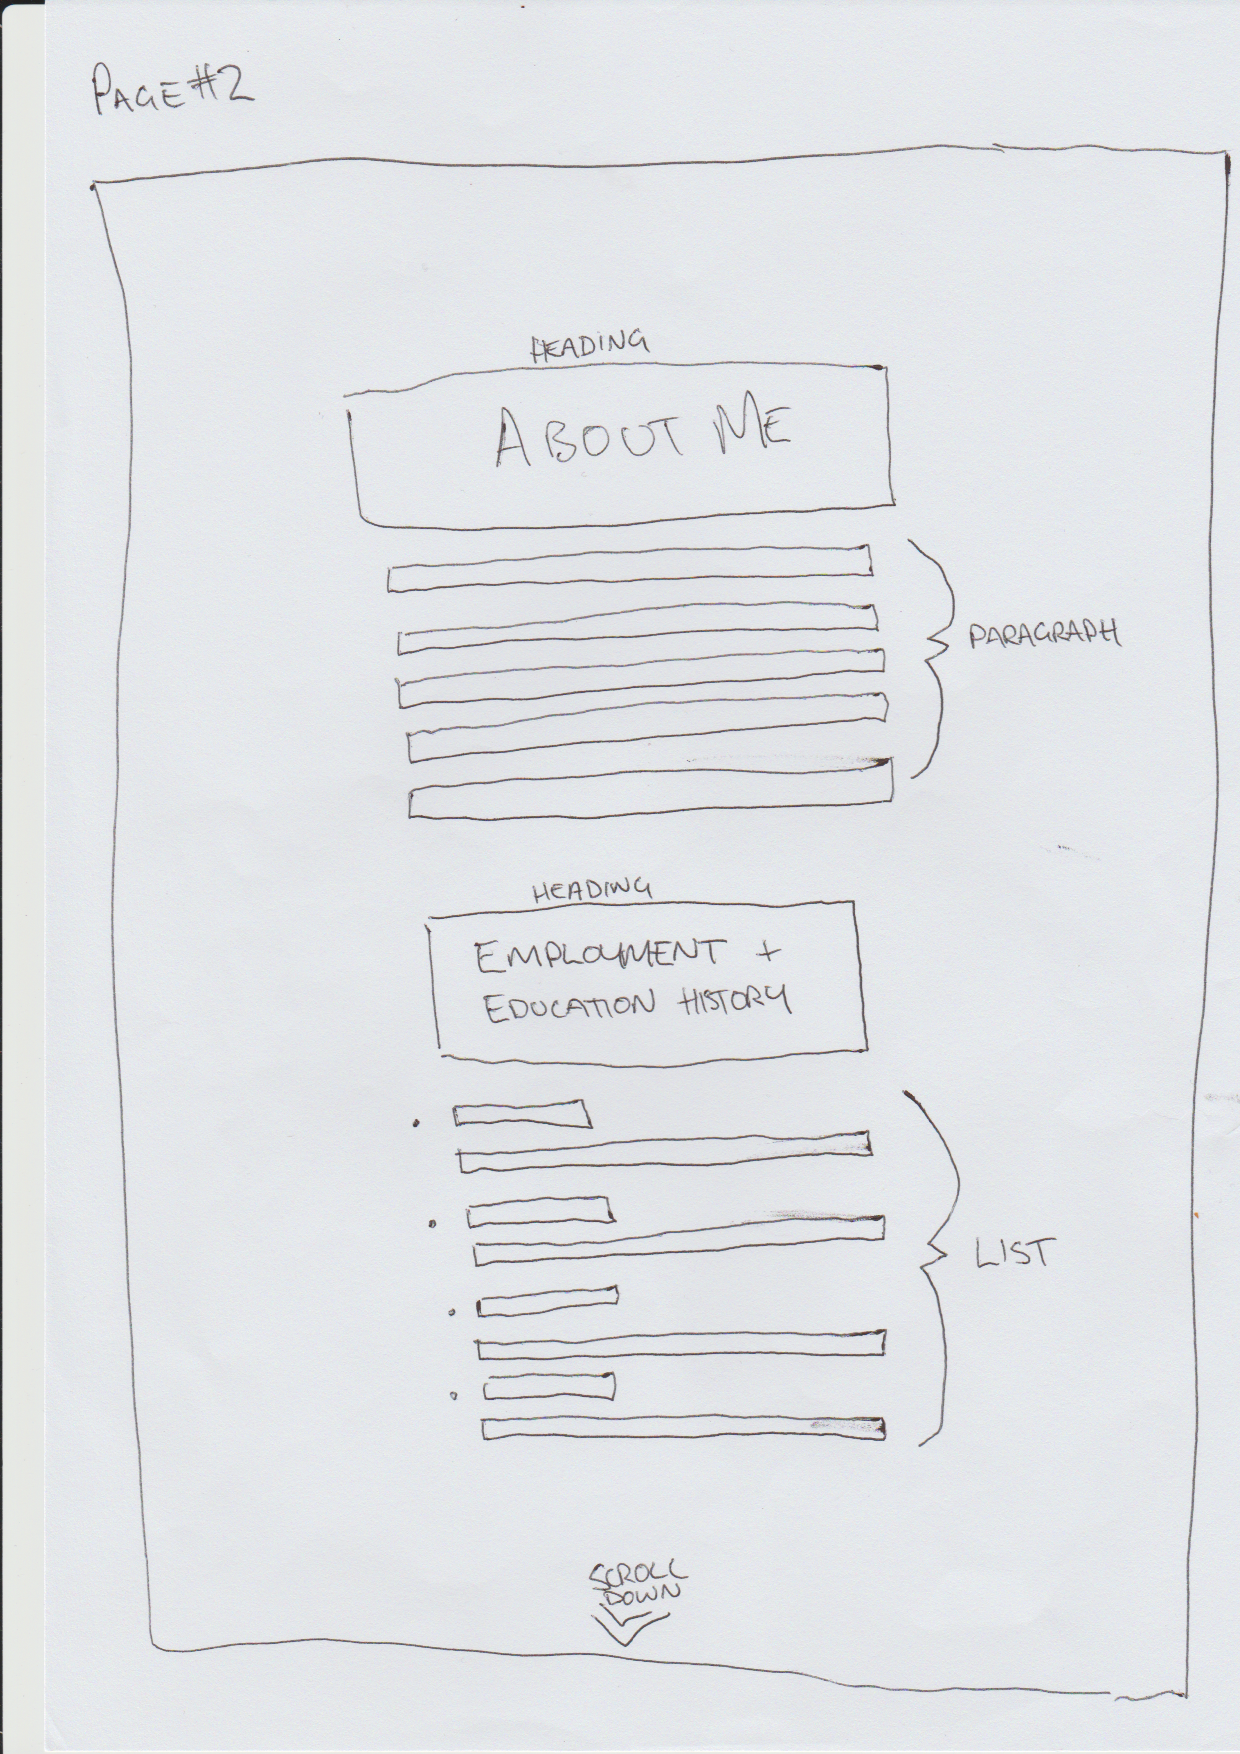 PAGE #2
HEADING
ABOUT ME
PARAGRAPH
HEADING
EMPLOYMENT +
EDUCATION HISTORY
LIST
SCROLL
DOWN